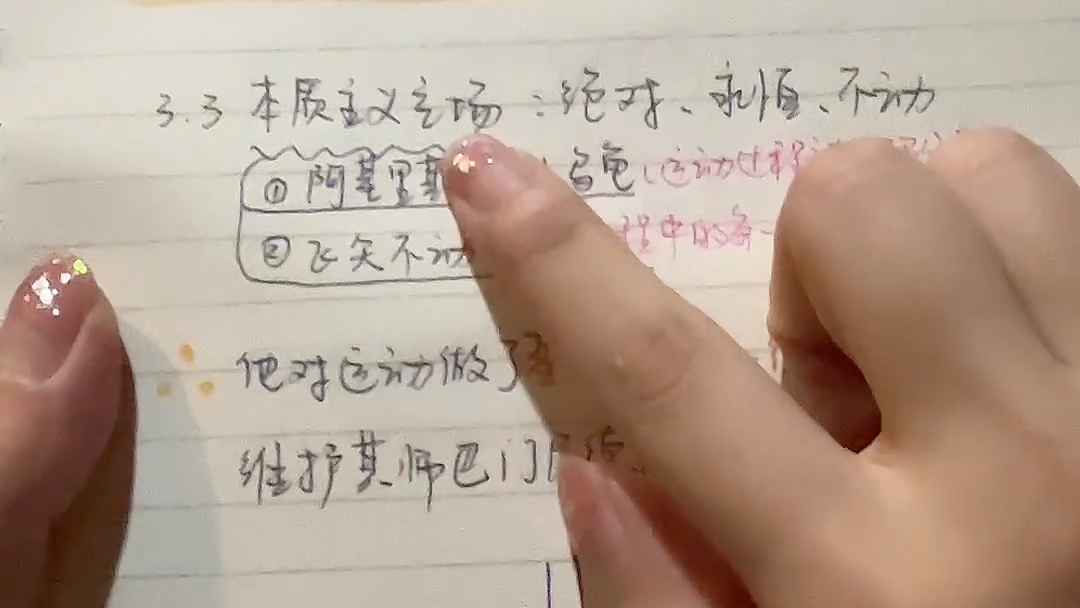 3.3 本质主义立场：绝对、永恒、不动
① 阿基里斯 乌龟（运动过程
② 飞矢不动 程中的每一
∴ 他对运动做了
维护其师巴门